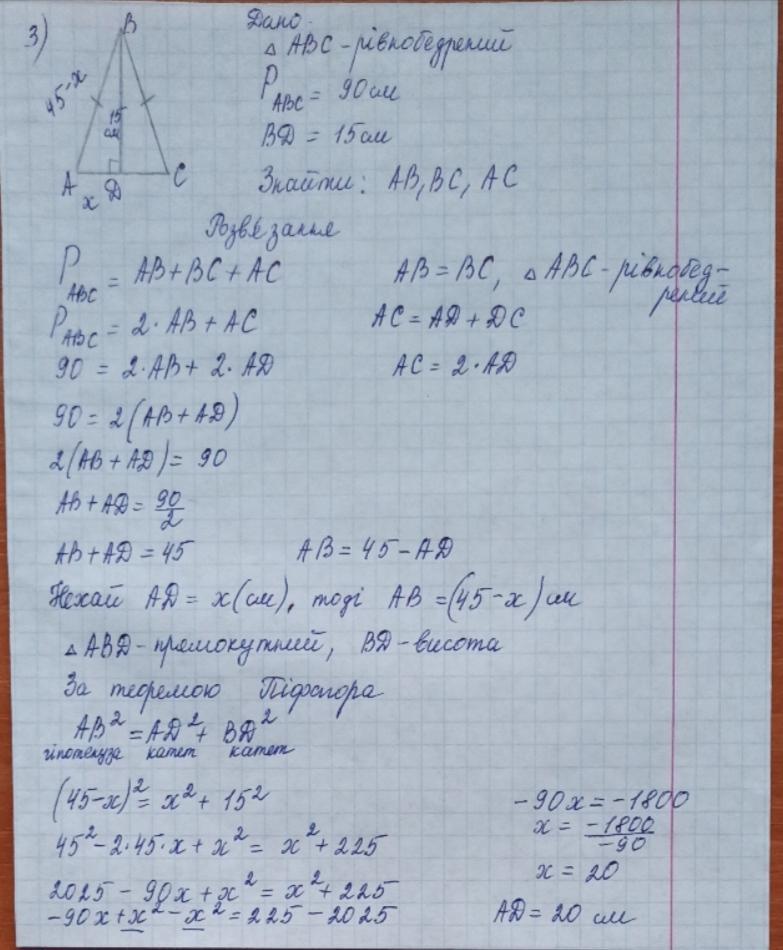 3)
B
45-x
15
см
A
D
C
x
Дано:
△ ABC - рівнобедрений
P ABC = 90 см
BD = 15 см
Знайти: AB, BC, AC
Розв'язання
P ABC = AB + BC + AC
AB = BC, △ ABC - рівнобед-
рений
P ABC = 2·AB + AC
AC = AD + DC
90 = 2·AB + 2·AD
AC = 2·AD
90 = 2(AB + AD)
2(AB + AD) = 90
AB + AD = 90/2
AB + AD = 45
AB = 45 - AD
Нехай AD = x (см), тоді AB = (45 - x) см
△ ABD - прямокутний, BD - висота
За теоремою Піфагора
AB² = AD² + BD²
гіпотенуза катет катет
(45-x)² = x² + 15²
45² - 2·45·x + x² = x² + 225
2025 - 90x + x² = x² + 225
-90x + x² - x² = 225 - 2025
-90x = -1800
x = -1800/-90
x = 20
AD = 20 см